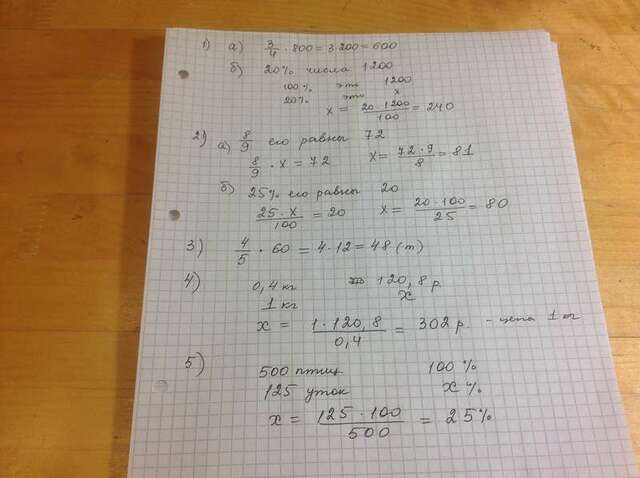 1) а) 3/4 · 800 = 3·200 = 600
б) 20% числа 1200
100% это 1200
20% это х
х = 20·1200/100 = 240
2) а) 8/9 его равны 72
8/9 · х = 72 х = 72·9/8 = 81
б) 25% его равны 20
25·х/100 = 20 х = 20·100/25 = 80
3) 4/5 · 60 = 4·12 = 48 (т)
4) 0,4 кг 120,8 р
1 кг х
х = 1·120,8/0,4 = 302 р. - цена 1 кг
5) 500 птиц 100%
125 уток х%
х = 125·100/500 = 25%